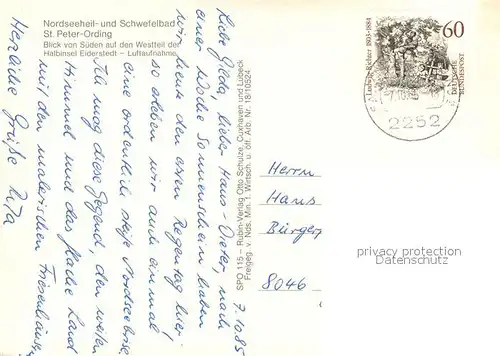 Nordseeheil- und Schwefelbad
St. Peter-Ording
Blick von Süden auf den Westteil der
Halbinsel Eiderstedt - Luftaufnahme
7.10.85
Liebe Gilda, lieber Hans-Dieter, nach
einer Woche Sonnenschein haben
wir heute den ersten Regentag hier,
so erleben wir auch einmal
eine ordentliche steife Nordseebrise.
Ich mag diese Gegend, den weiten
Himmel und das flache Land
mit den malerischen Friesenhäusern
Herzliche Grüße Rita
SPO 115 - Rubin-Verlag Otto Schulze, Cuxhaven und Lübeck
Freigeg. v. Nds. Min. f. Wirtsch. u. öff. Arb. Nr. 18/10524
Ludwig Richter 1803-1884
60
DEUTSCHE
BUNDESPOST
2252
Herrn
Hans
Bürger
8046
privacy protection
Datenschutz